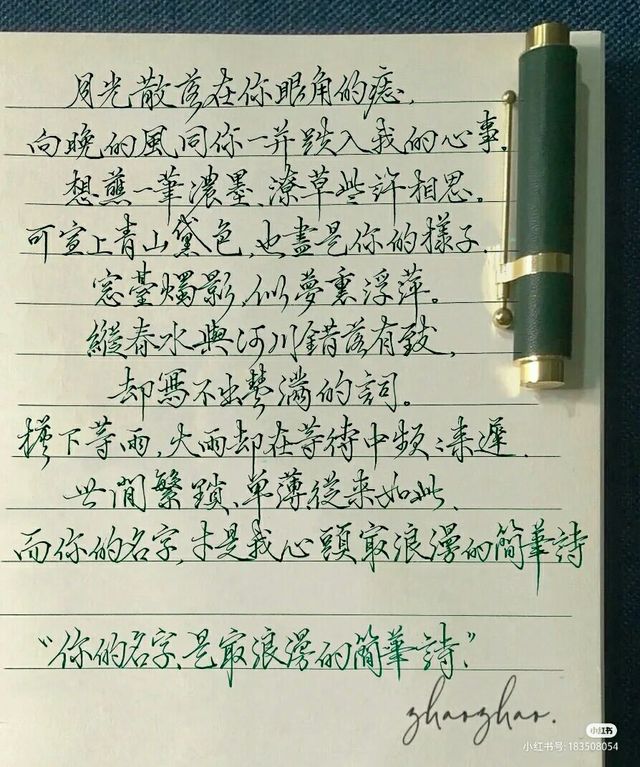 月光散落在你眼角的痣,
向晚的風同你一并跌入我的心事。
想蘸一筆濃墨、潦草些許相思。
可宣上青山黛色,也盡是你的樣子.
窓臺燭影,似夢裏浮萍。
縱春水與河川錯落有致,
却寫不出豐滿的詞。
樓下等雨,大雨却在等待中頻頻来遲.
世間繁瑣、單薄從来如此、
而你的名字,才是我心頭最浪漫的簡筆詩
“你的名字、是最浪漫的簡筆詩、”
zhaozhao.
小红书
小红书号: 183508054